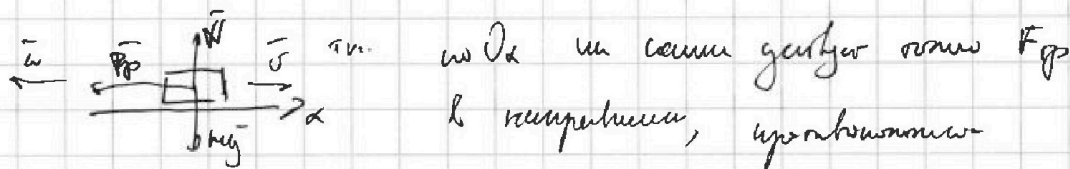 т.к. по Ox на санки действует только Fтр
в направлении, противополож-